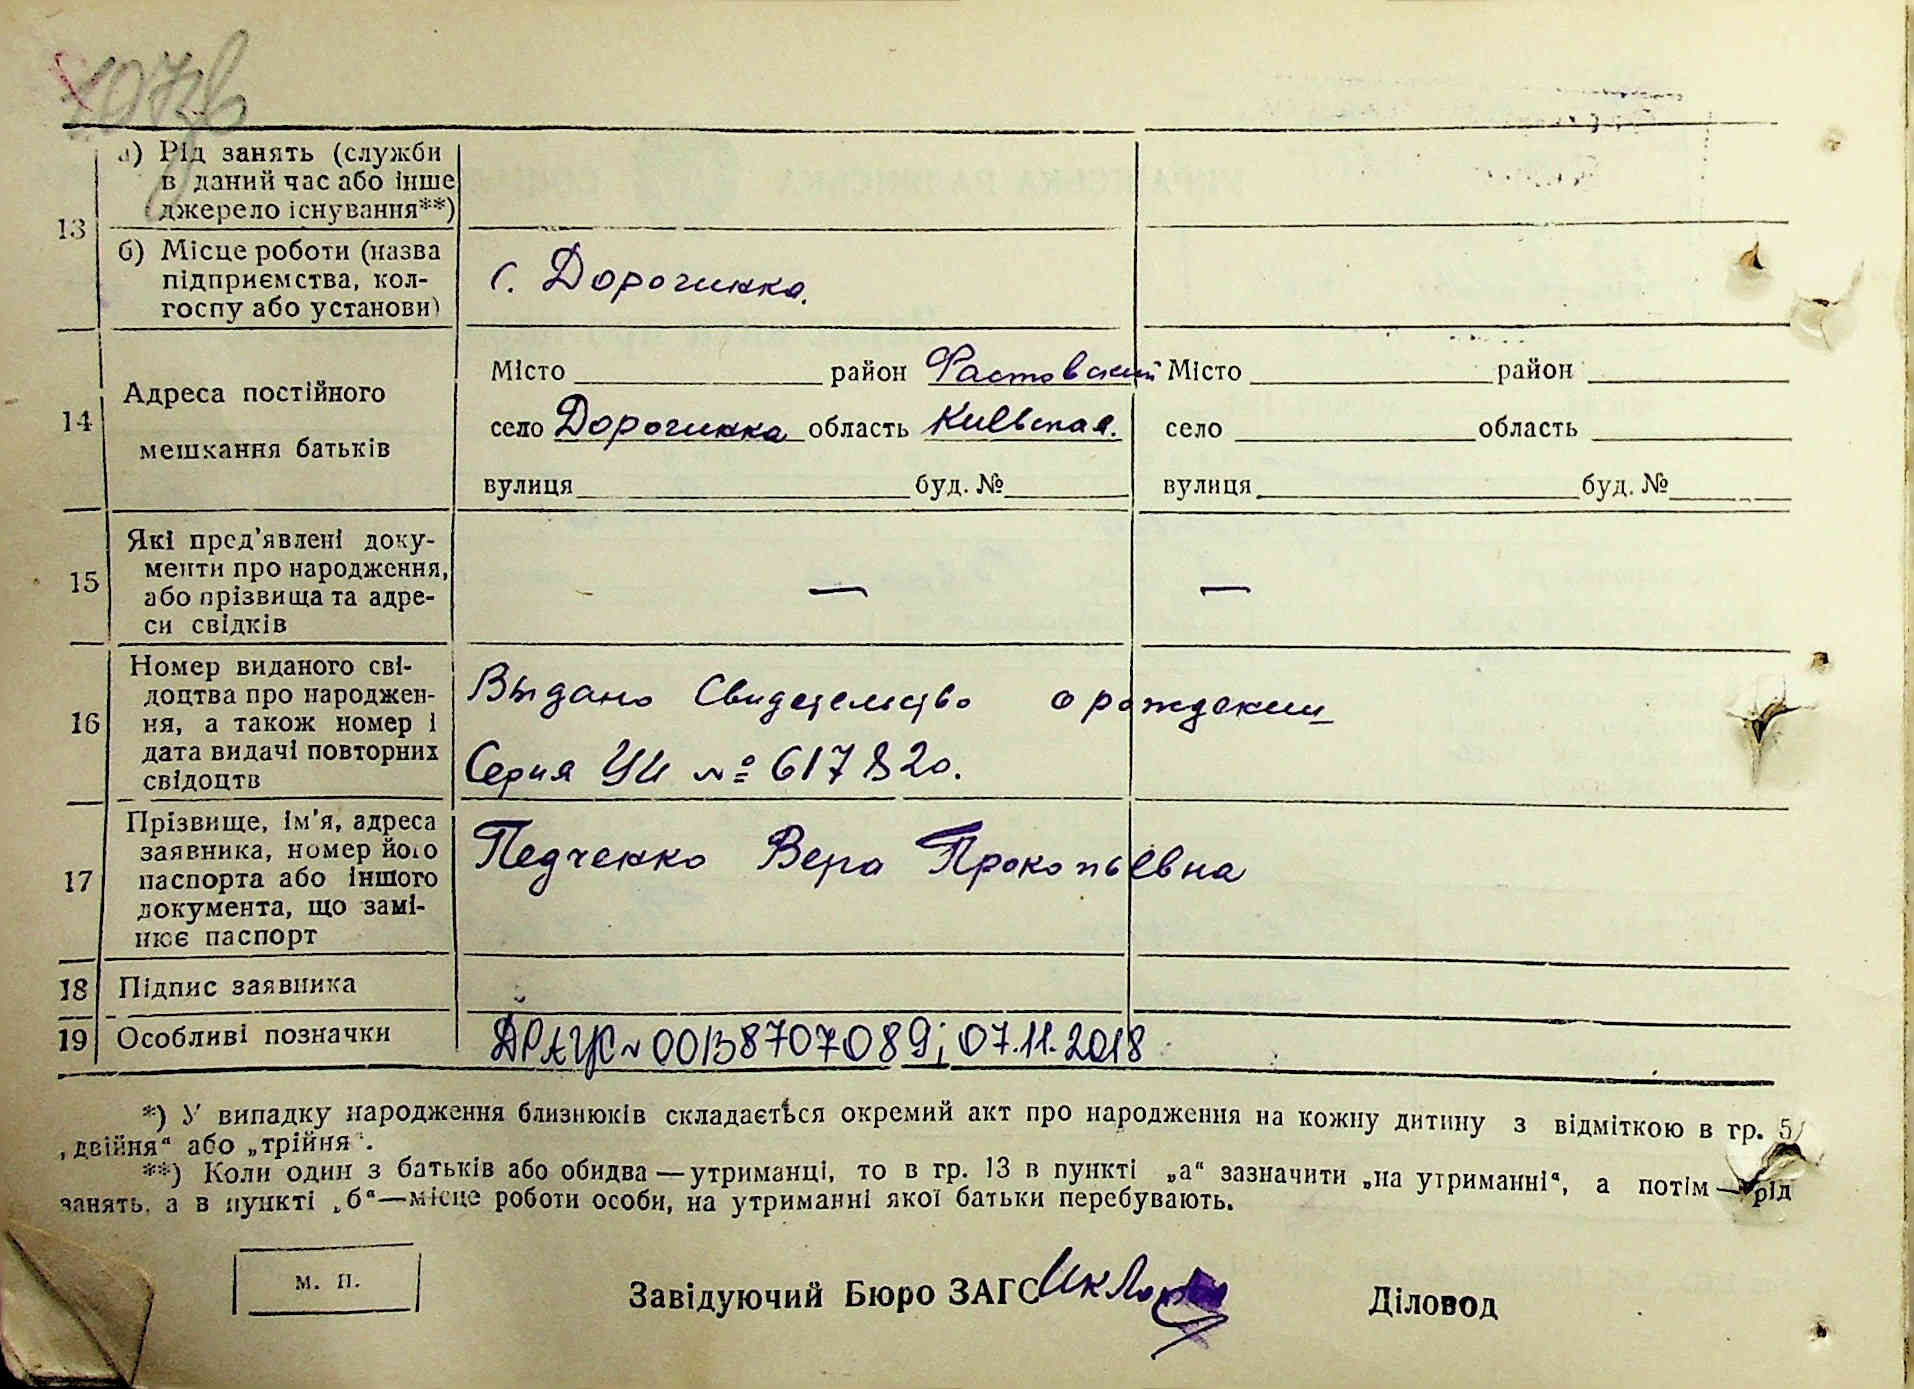 13
а) Рід занять (служби
в даний час або інше
джерело існування**)
б) Місце роботи (назва
підприємства, кол-
госпу або установи)
с. Дорогинка.
14
Адреса постійного
мешкання батьків
Місто район Фастовский Місто район
село Дорогинка область Киевская. село область
вулиця буд. № вулиця буд. №
15
Які пред'явлені доку-
менти про народження,
або прізвища та адре-
си свідків
— —
16
Номер виданого сві-
доцтва про народжен-
ня, а також номер і
дата видачі повторних
свідоцтв
Выдано Свидетельство о рождении
Серия УИ № 617820.
17
Прізвище, ім'я, адреса
заявника, номер його
паспорта або іншого
документа, що замі-
нює паспорт
Педченко Вера Прокопьевна
18 Підпис заявника
19 Особливі позначки
ДРАЦС № 00138707089; 07.11.2018
*) У випадку народження близнюків складається окремий акт про народження на кожну дитину з відміткою в гр. 5
„двійня“ або „трійня“.
**) Коли один з батьків або обидва—утриманці, то в гр. 13 в пункті „а“ зазначити „на утриманні“, а потім—рід
занять, а в пункті „б“—місце роботи особи, на утриманні якої батьки перебувають.
м. п.
Завідуючий Бюро ЗАГС Діловод